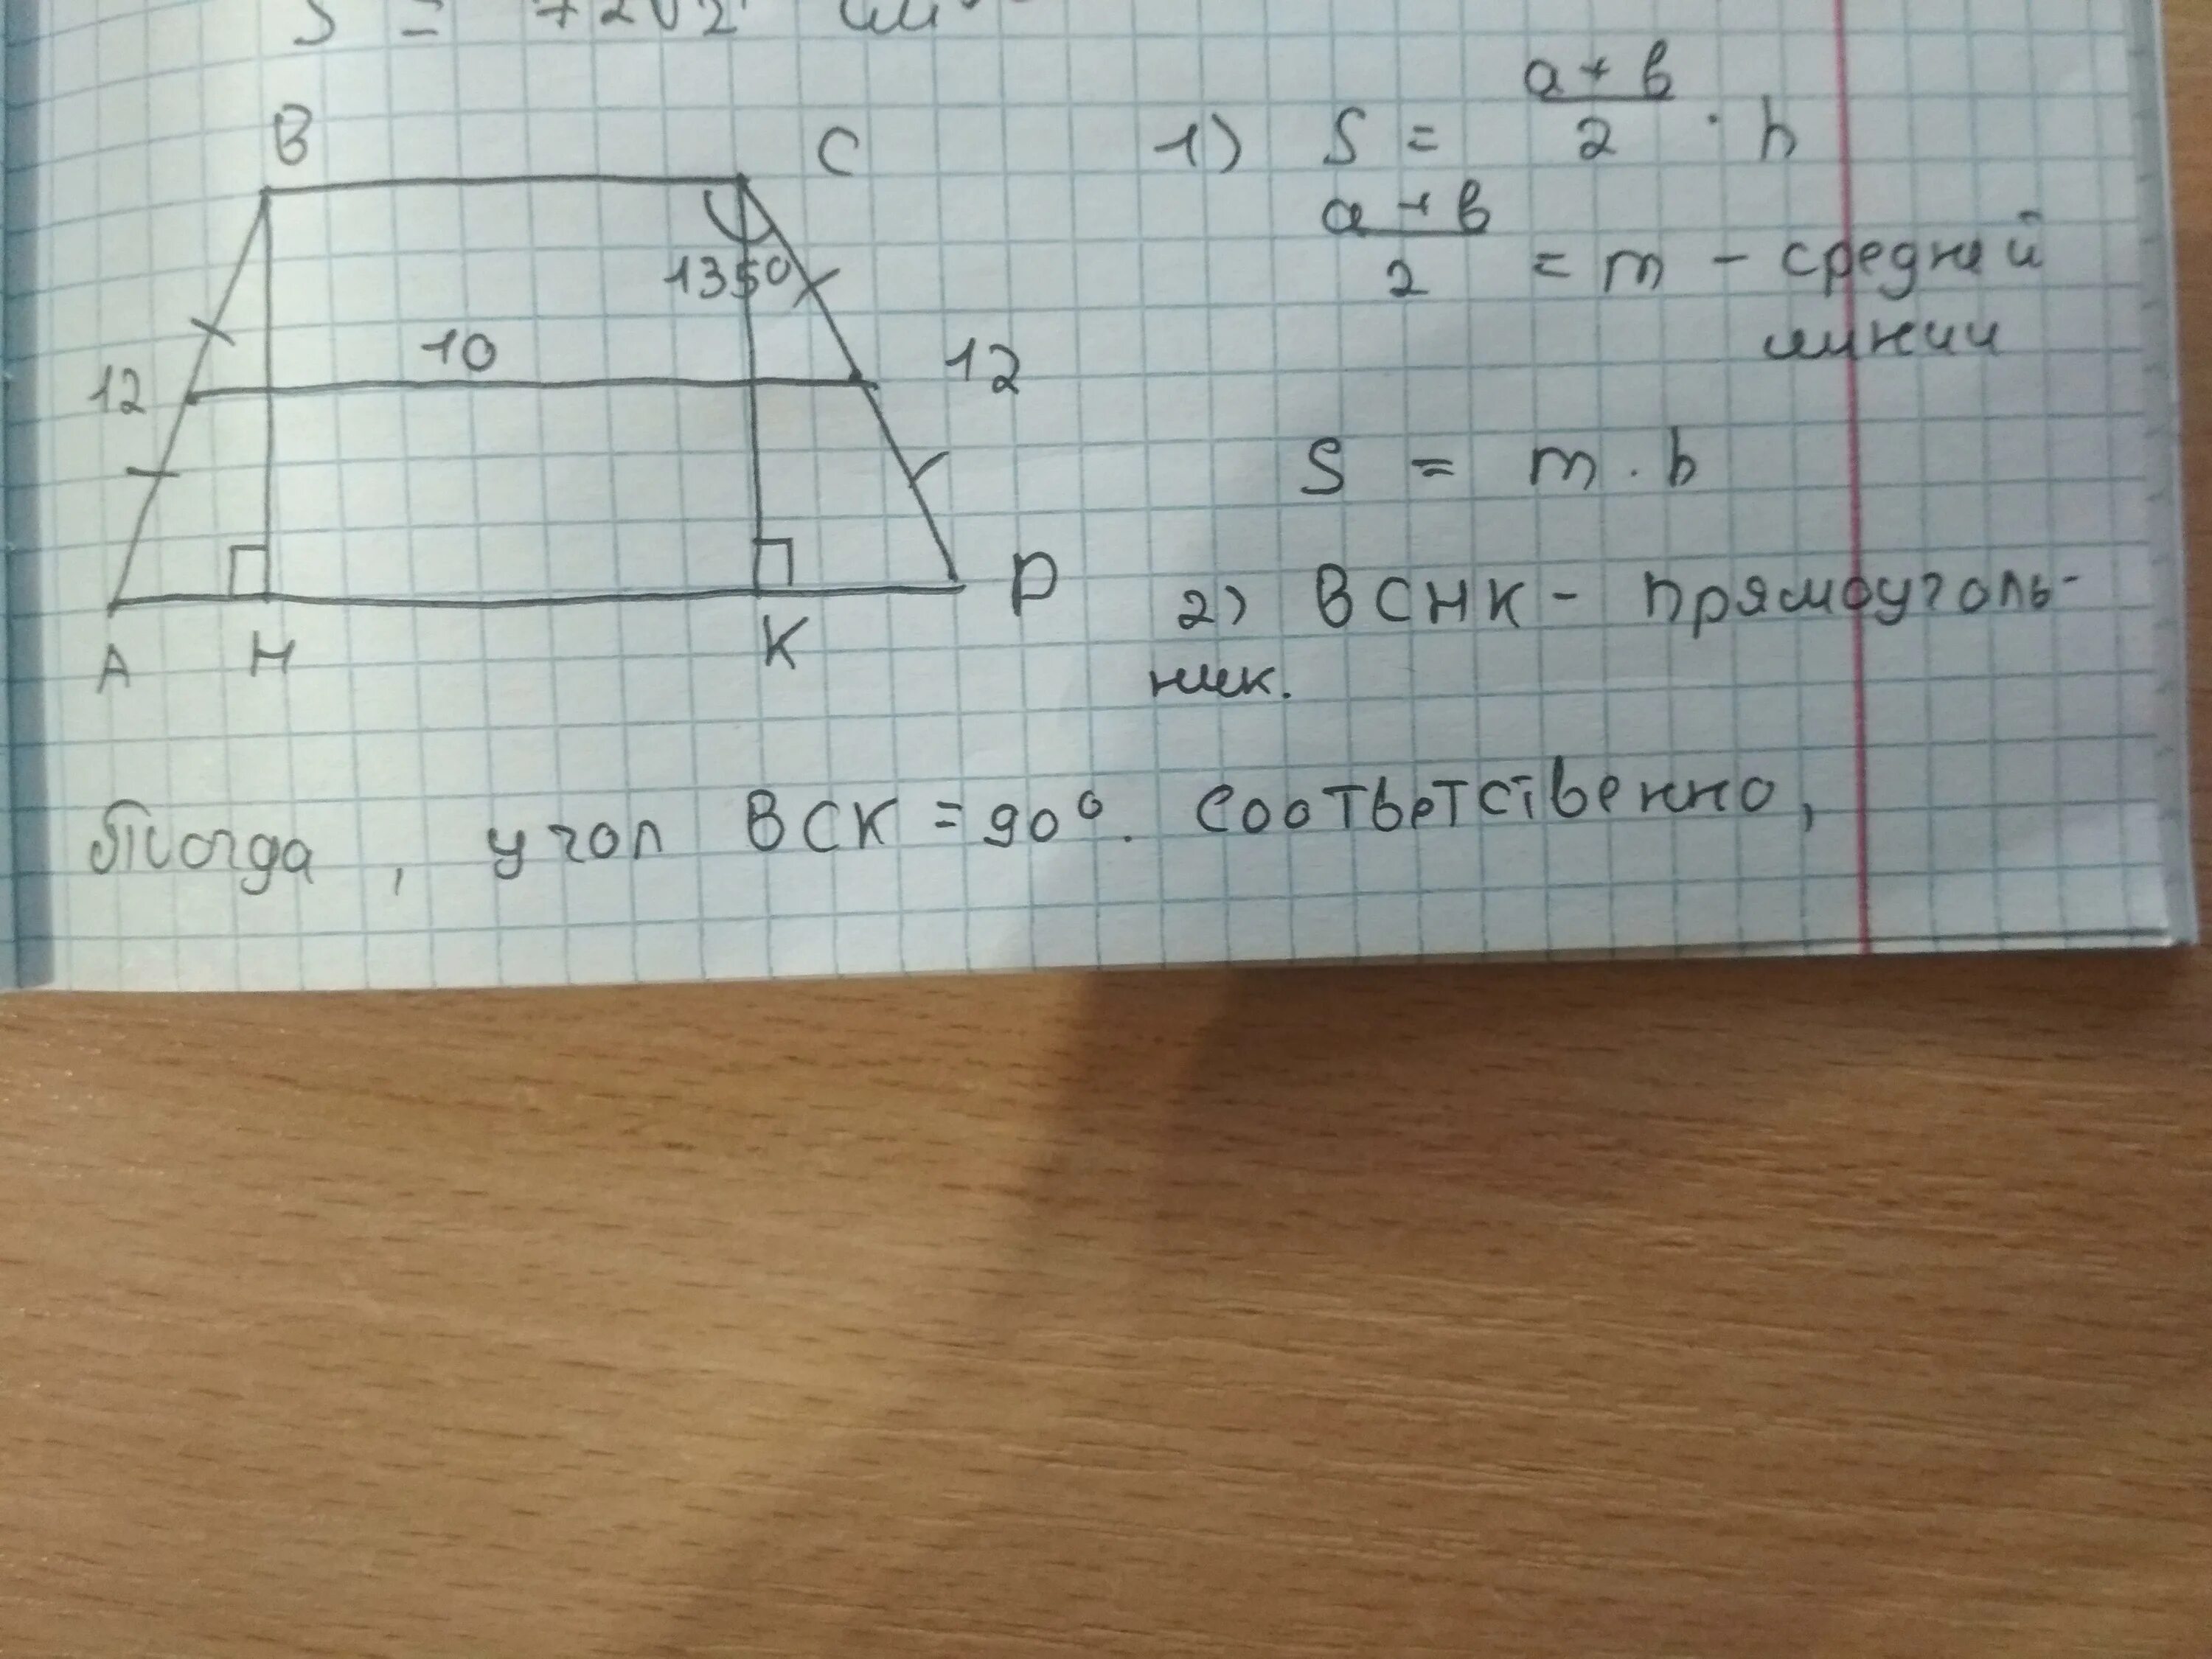 S = 72√2 см²
B
C
135°
10
12
12
A
H
K
D
1) S = a + b / 2 · h
a + b / 2 = m - средней
линии
S = m · h
2) BCHK - прямоуголь-
ник.
Тогда, угол BCK = 90°. Соответственно,